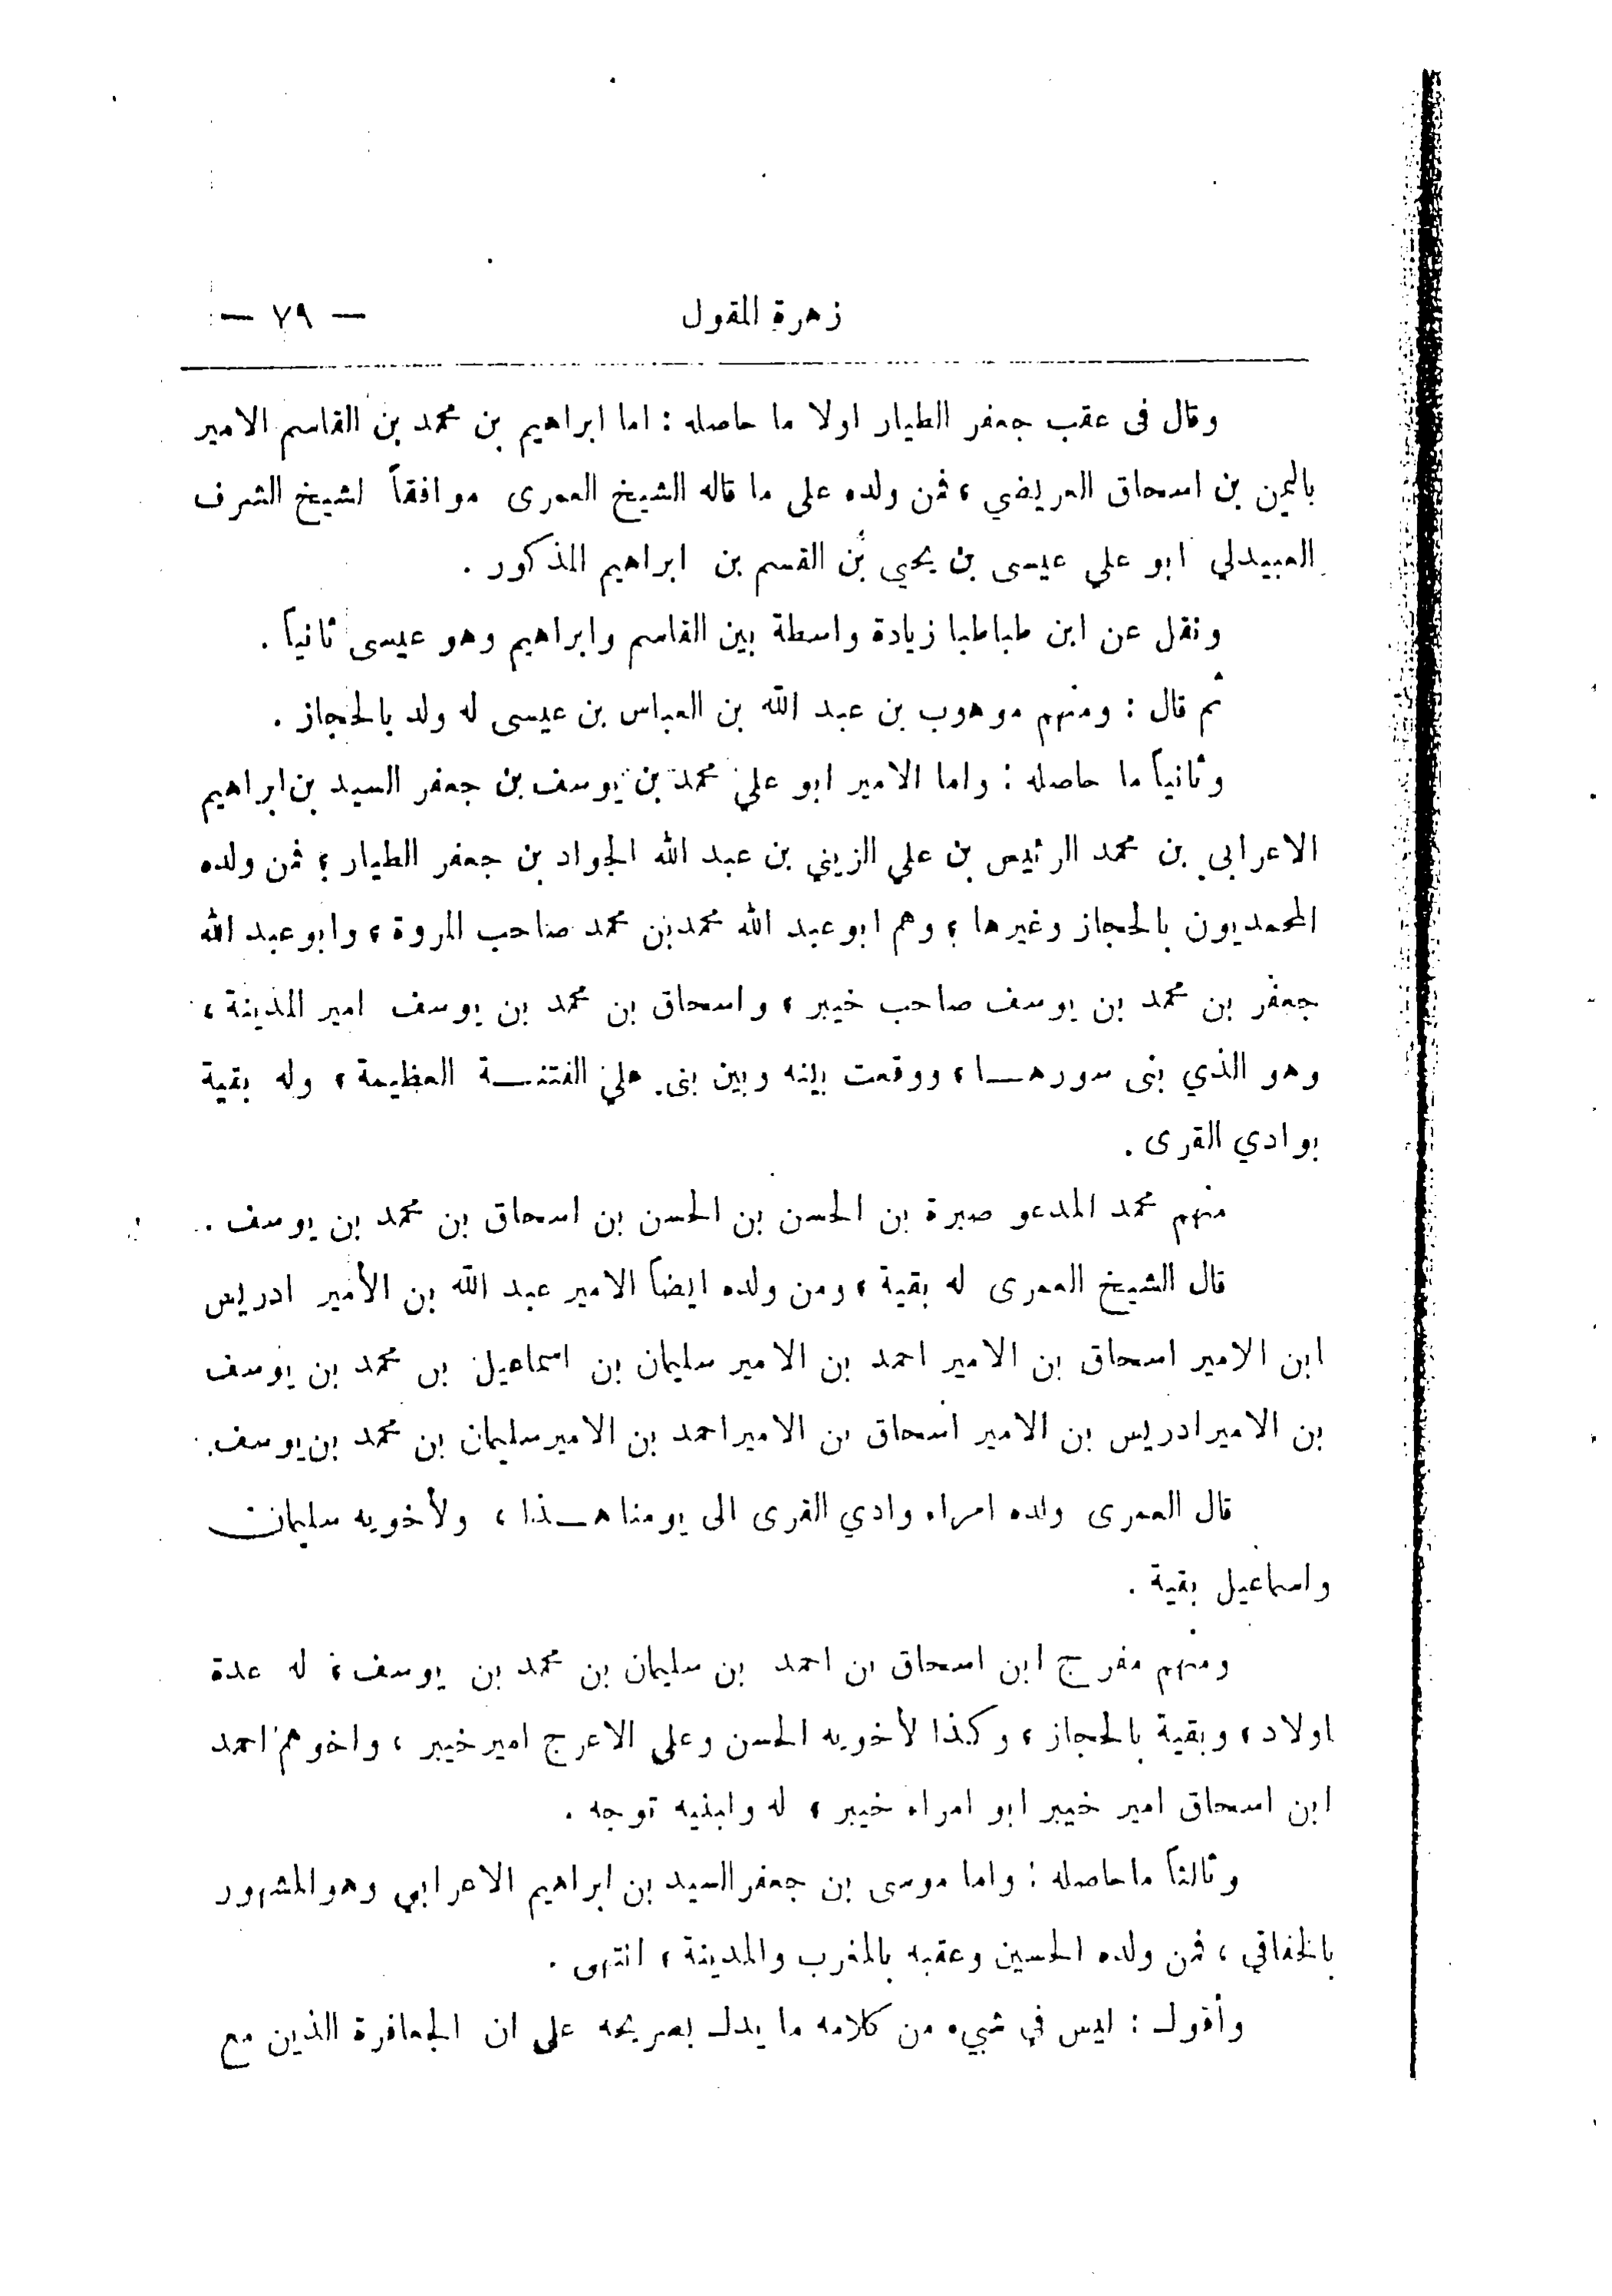 زهرة المقول
— ٧٩ —
وقال فى عقب جعفر الطيار اولا ما حاصله : اما ابراهيم بن محمد بن القاسم الامير
باليمن بن اسحاق العريضي ، فمن ولده على ما قاله الشيخ العمرى موافقاً لشيخ الشرف
العبيدلي ابو علي عيسى بن يحيي بن القسم بن ابراهيم المذكور .
ونقل عن ابن طباطبا زيادة واسطة بين القاسم وابراهيم وهو عيسى ثانياً .
ثم قال : ومنهم موهوب بن عبد الله بن العباس بن عيسى له ولد بالحجاز .
وثانياً ما حاصله : واما الامير ابو علي محمد بن يوسف بن جعفر السيد بن ابراهيم
الاعرابي بن محمد الرئيس بن علي الزيني بن عبد الله الجواد بن جعفر الطيار ؛ فمن ولده
المحمديون بالحجاز وغيرها ؛ وهم ابو عبد الله محمد بن محمد صاحب المروة ، وابو عبد الله
جعفر بن محمد بن يوسف صاحب خيبر ، واسحاق بن محمد بن يوسف امير المدينة ،
وهو الذي بنى سورهــا ، ووقعت بينه وبين بنى علي الفتنــة العظيمة ، وله بقية
بوادي القرى .
منهم محمد المدعو صبرة بن الحسن بن الحسن بن اسحاق بن محمد بن يوسف .
قال الشيخ العمرى له بقية ، ومن ولده ايضاً الامير عبد الله بن الأمير ادريس
ابن الامير اسحاق بن الامير احمد بن الامير سليمان بن اسماعيل بن محمد بن يوسف
بن الامير ادريس بن الامير اسحاق بن الامير احمد بن الامير سليمان بن محمد بن يوسف .
قال العمرى ولده امراء وادي القرى الى يومنا هــذا ، ولأخويه سليمان
واسماعيل بقية .
ومنهم مفرج ابن اسحاق بن احمد بن سليمان بن محمد بن يوسف ؛ له عدة
اولاد ، وبقية بالحجاز ، وكذا لأخويه الحسن وعلى الاعرج امير خيبر ، واخوهم احمد
ابن اسحاق امير خيبر ابو امراء خيبر ، له وابنيه توجه .
وثالثاً ما حاصله : واما موسى بن جعفر السيد بن ابراهيم الاعرابي وهو المشهور
بالخفاقي ، فمن ولده الحسين وعقبه بالمغرب والمدينة ، انتهى .
وأقول : ليس في شيء من كلامه ما يدل بصريحه على ان الجعافرة الذين مع